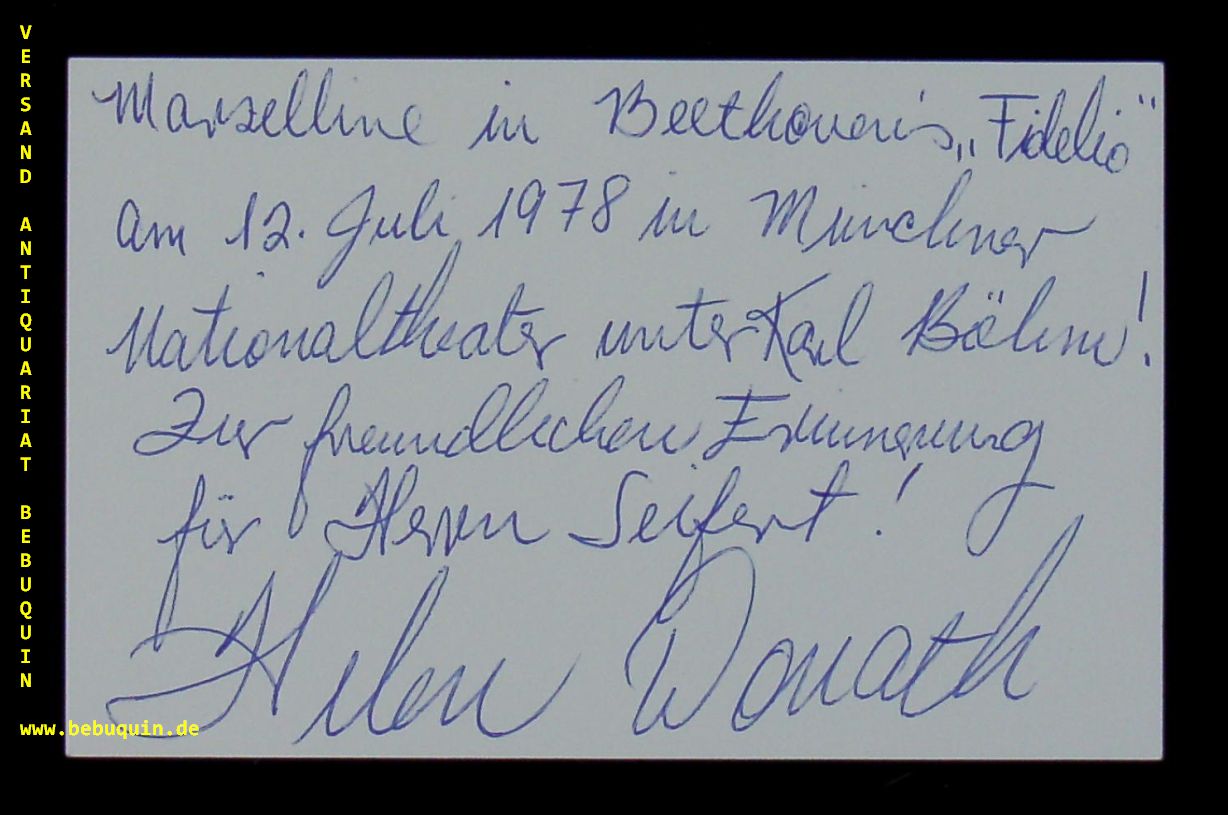 VERSAND ANTIQUARIAT BEBUQUIN
Marzelline in Beethoven's „Fidelio“
am 12. Juli 1978 in Münchner
Nationaltheater unter Karl Böhm!
Zur freundlichen Erinnerung
für Herrn Seifert!
Helen Donath
www.bebuquin.de